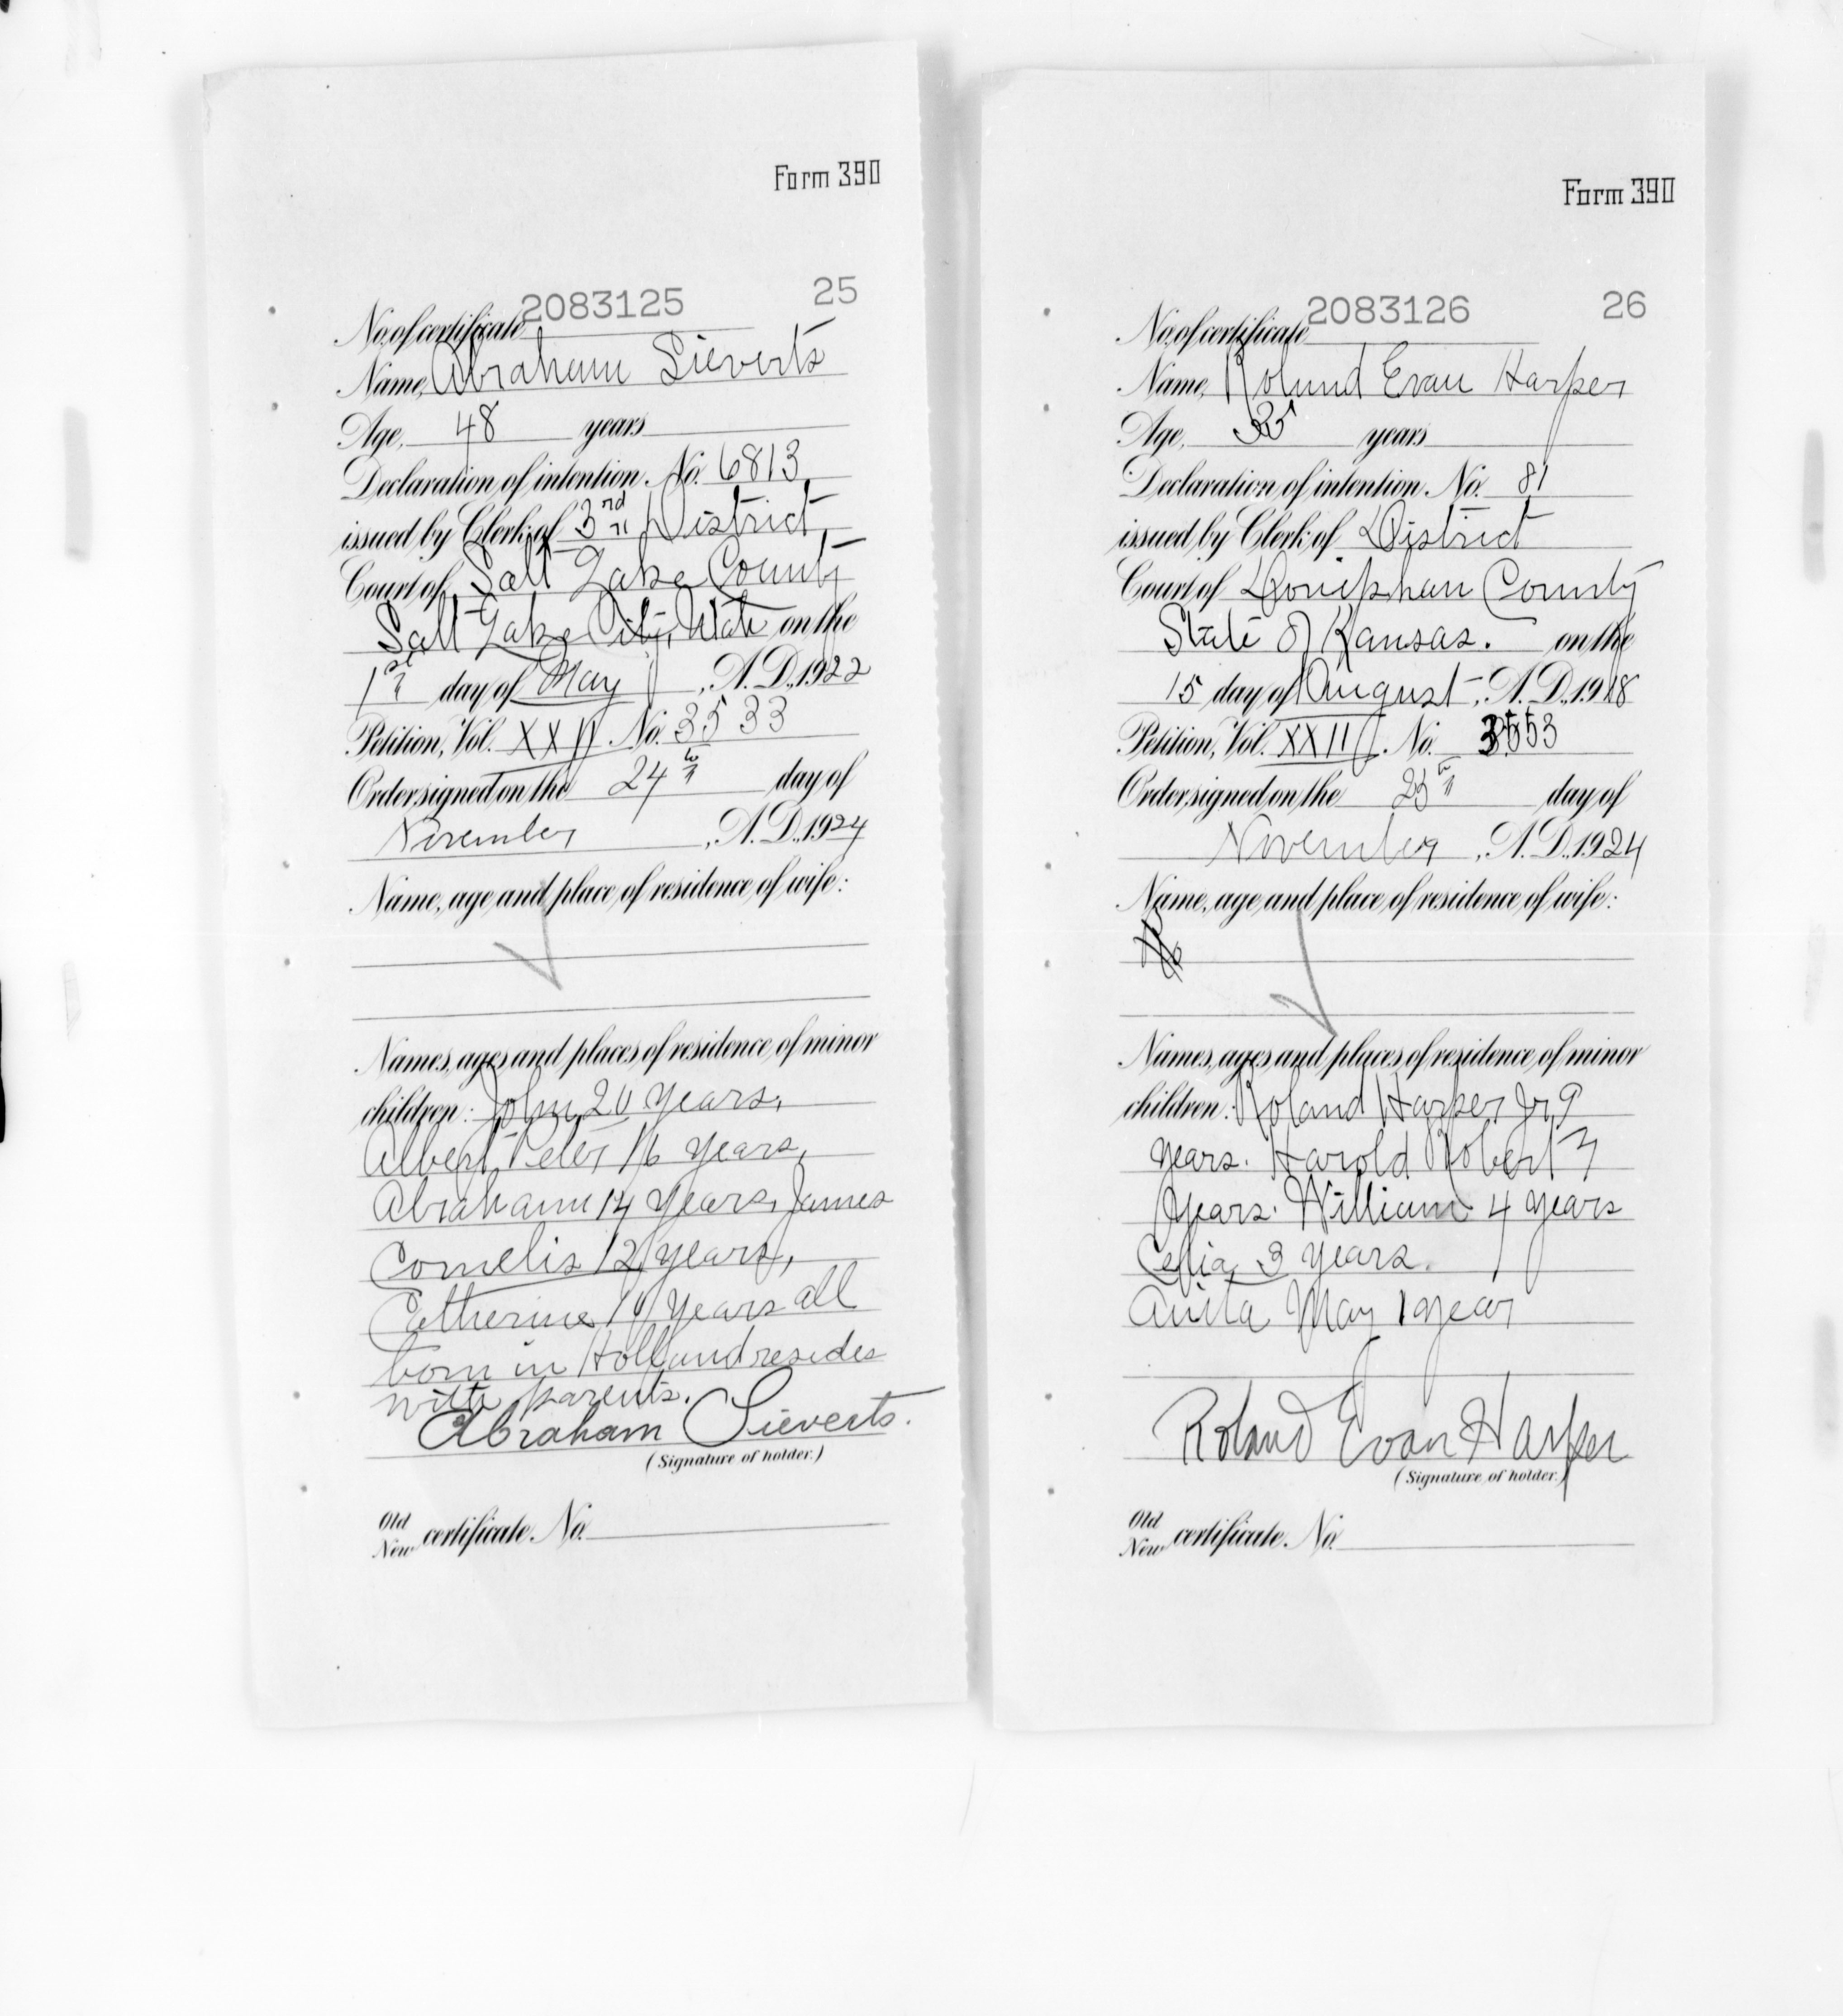 Form 390
2083125 25
No. of certificate
Name, Abraham Sieverts
Age, 48 years
Declaration of intention, No. 6813,
issued by Clerk of 3rd District,
Court of Salt Lake County
Salt Lake City, Utah on the
1st day of May, A.D., 1922
Petition, Vol. XXII No. 3533
Order signed on the 24th day of
November, A.D., 1924
Name, age and place of residence of wife:
Names, ages and places of residence of minor
children: John 20 years,
Albert Peter 16 years,
Abraham 14 years, James
Cornelis 12 years,
Catherine years all
born in Holland resides
with parents.
Abraham Sieverts.
(Signature of holder.)
Old
New certificate, No.
Form 390
2083126 26
No. of certificate
Name, Roland Evan Harper
Age, 35 years
Declaration of intention, No. 81
issued by Clerk of District
Court of Doniphan County
State of Kansas. on the
15 day of August, A.D., 1918
Petition, Vol. XXII. No. 3553
Order signed on the day of
November, A.D., 1924
Name, age and place of residence of wife:
Names, ages and places of residence of minor
children: Roland Harper Jr, 9
years. Harold Robert 7
years. William 4 years
Celia, 3 years.
Anita May 1 year
Roland Evan Harper
(Signature of holder.)
Old
New certificate, No.